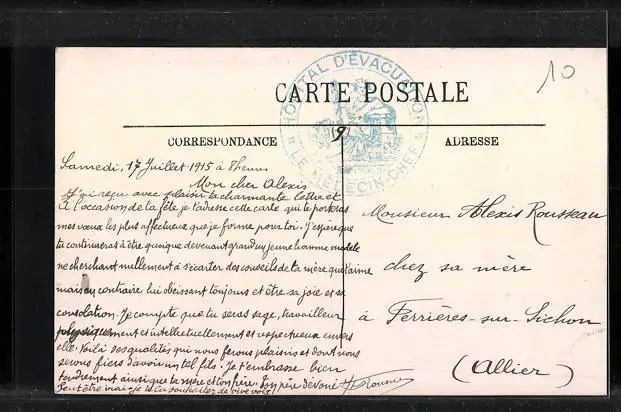 10
HOPITAL D'ÉVACUATION
LE MÉDECIN-CHEF
CARTE POSTALE
CORRESPONDANCE
ADRESSE
Samedi, 17 Juillet 1915 à 8 heures
Mon cher Alexis
J'ai reçu avec plaisir ta charmante lettre et
A l'occasion de la fête je t'adresse cette carte qui te porte
mes vœux les plus affectueux que je forme pour toi. J'espère que
tu continueras à être quoique devenant grand un jeune homme modèle
ne cherchant nullement à s'écarter des conseils de ta mère que t'aime
mais au contraire lui obéissant toujours et être sa joie et sa
consolation. Je compte que tu seras sage, travailleur
physiquement et intellectuellement et respectueux envers
elle. Voilà ses qualités qui nous ferons plaisirs et dont nous
serons fiers d'avoir un tel fils. Je t'embrasse bien
tendrement ainsi que ta mère et ton frère. Ton père dévoué
Peut être vrai je te la souhaiter de vive voix
Monsieur Alexis Rousseau
chez sa mère
à Ferrières-sur-Sichon
(Allier)